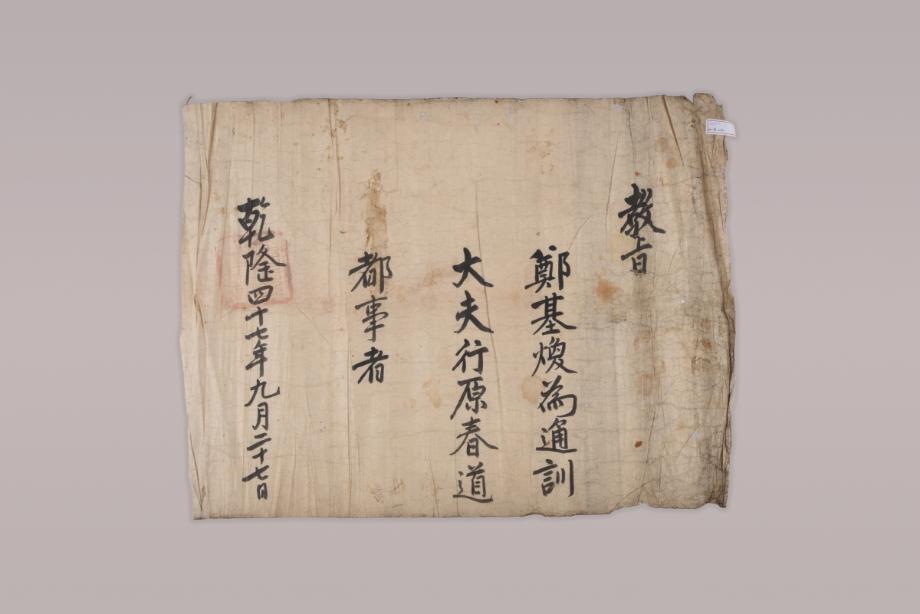 敎旨
鄭基煥為通訓
大夫行原春道
都事者
乾隆四十七年九月二十七日